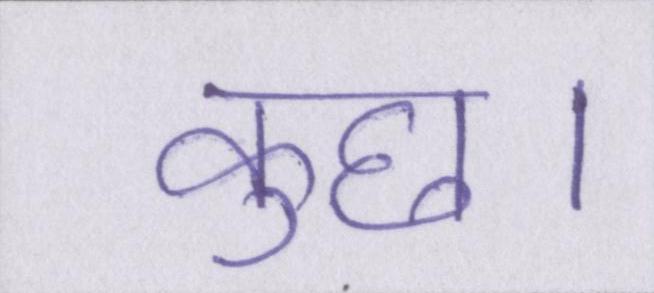 कुछ।